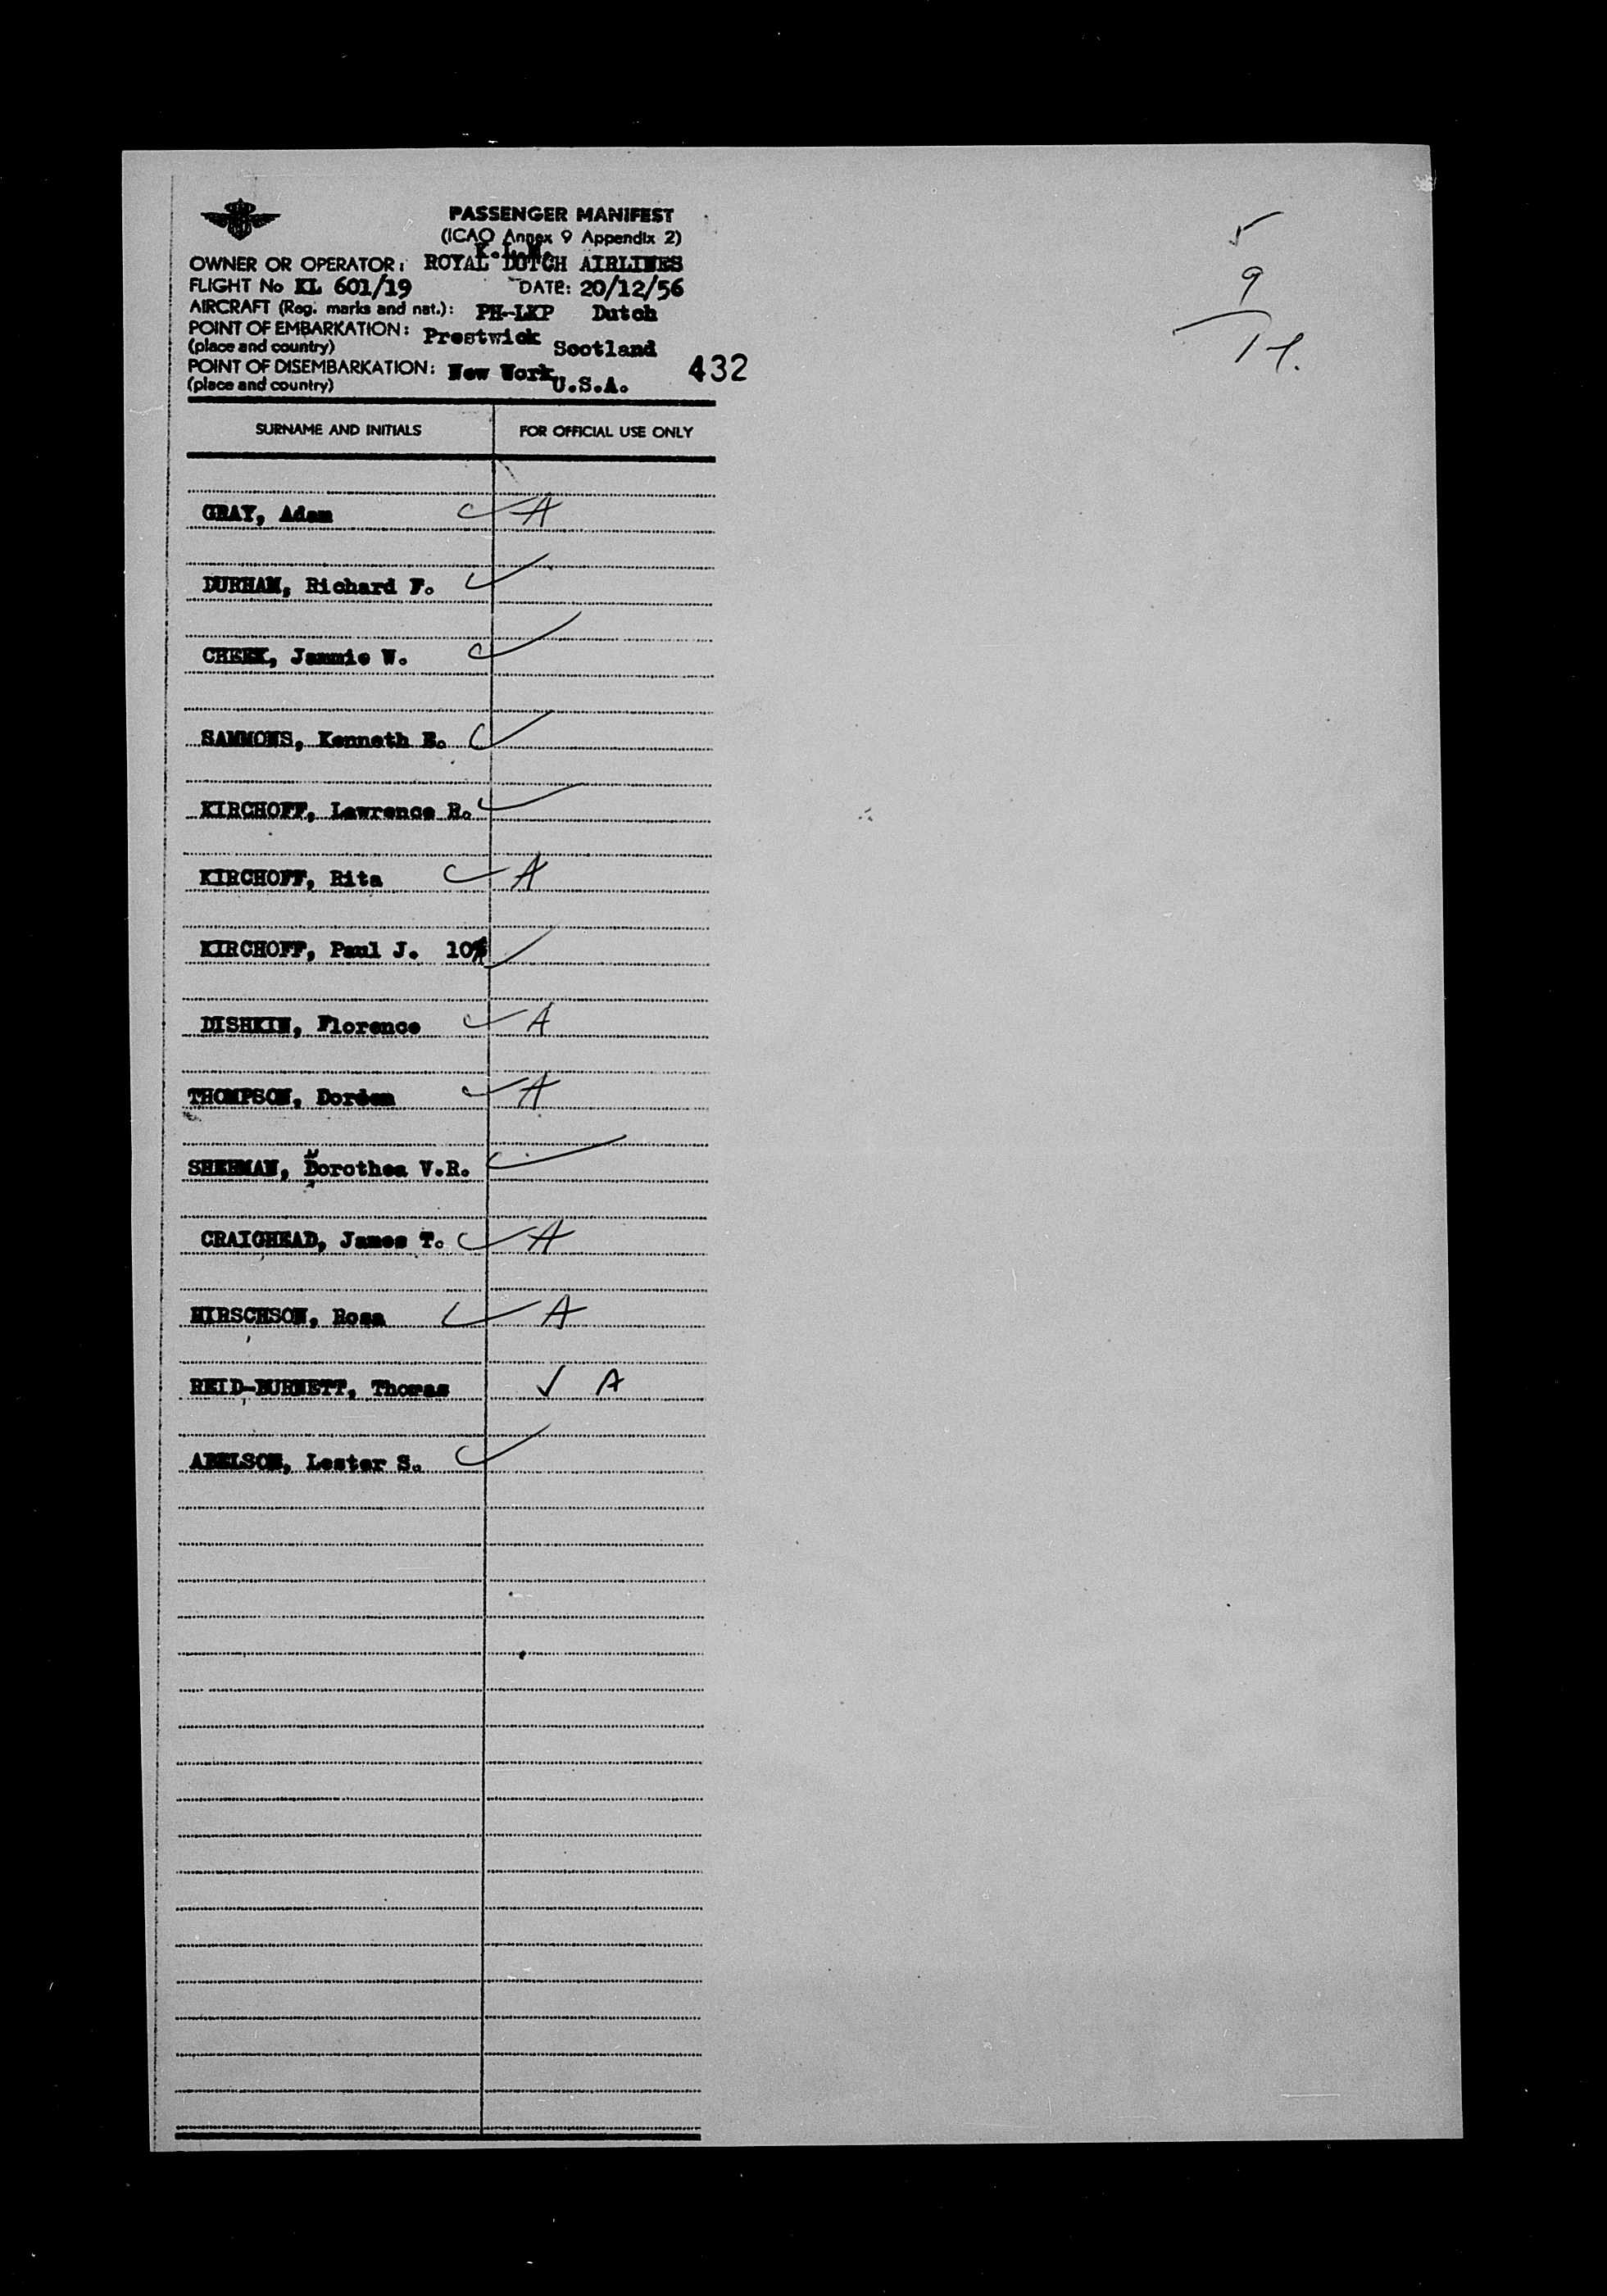 PASSENGER MANIFEST
(ICAO Annex 9 Appendix 2)
K.L.M.
OWNER OR OPERATOR: ROYAL DUTCH AIRLINES
FLIGHT No KL 601/19 DATE: 20/12/56
AIRCRAFT (Reg. marks and nat.): PH-LKP Dutch
POINT OF EMBARKATION: Prestwick
(place and country) Scotland
POINT OF DISEMBARKATION: New Work 432
(place and country) U.S.A.
SURNAME AND INITIALS FOR OFFICIAL USE ONLY
GRAY, Adam A
DURHAM, Richard F.
CHEEK, Jammie W.
SAMMONS, Kenneth E.
KIRCHOFF, Lawrence R.
KIRCHOFF, Rita A
KIRCHOFF, Paul J. 10%
DISHKIN, Florence A
THOMPSON, Doreen A
SHERMAN, Dorothea V.R.
CRAIGHEAD, James T. A
HIRSCHSON, Rosa A
REID-BURNETT, Thomas A
ABELSON, Lester S.
5
9
14.